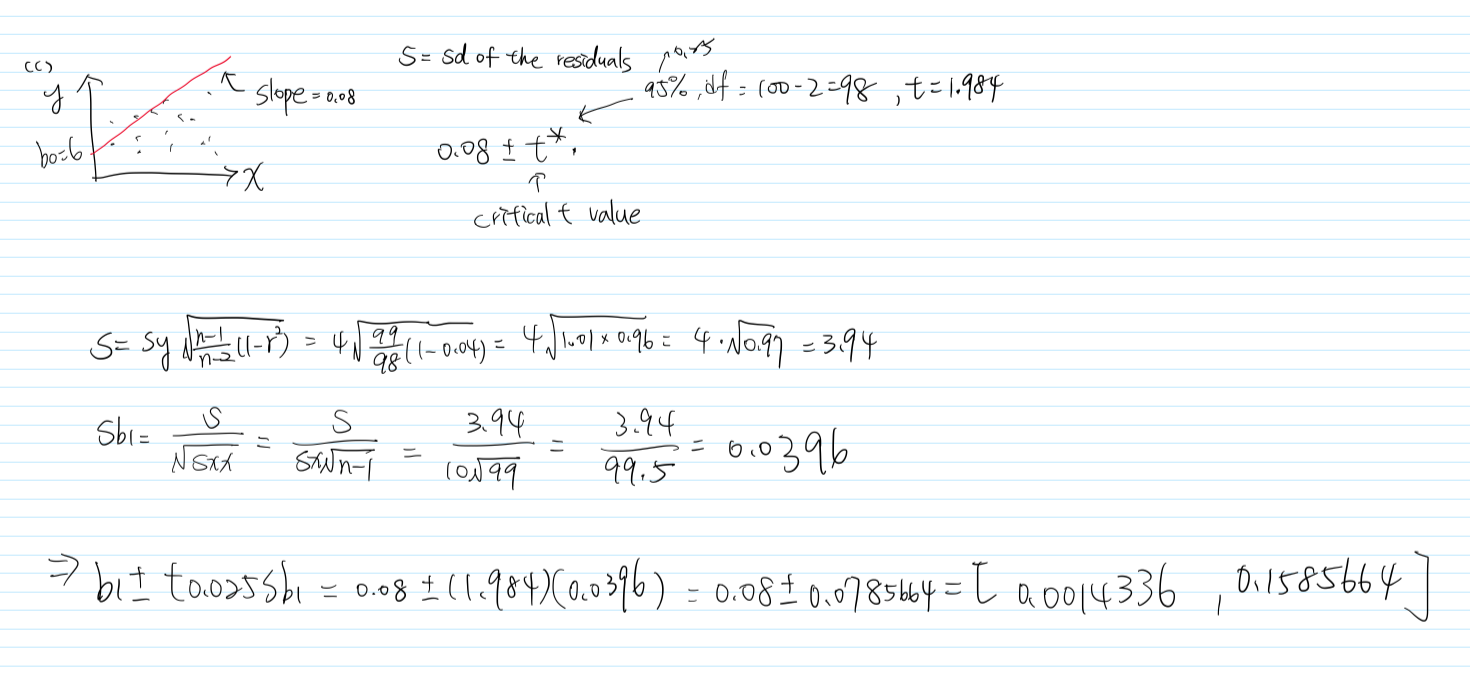 (c)
y
slope = 0.08
b0=6
x
S = sd of the residuals
95%, df = 100-2=98, t=1.984
0.08 ± t*.
critical t value
S = Sy √(n-1/n-2 (1-r²)) = 4√(99/98 (1-0.04)) = 4√(1.01 × 0.96) = 4·√0.97 = 3.94
Sb1 = S/√Sxx = S/Sx√n-1 = 3.94/10√99 = 3.94/99.5 = 0.0396
⇒ b1 ± t0.025 Sb1 = 0.08 ± (1.984)(0.0396) = 0.08 ± 0.0785664 = [ 0.0014336 , 0.1585664 ]